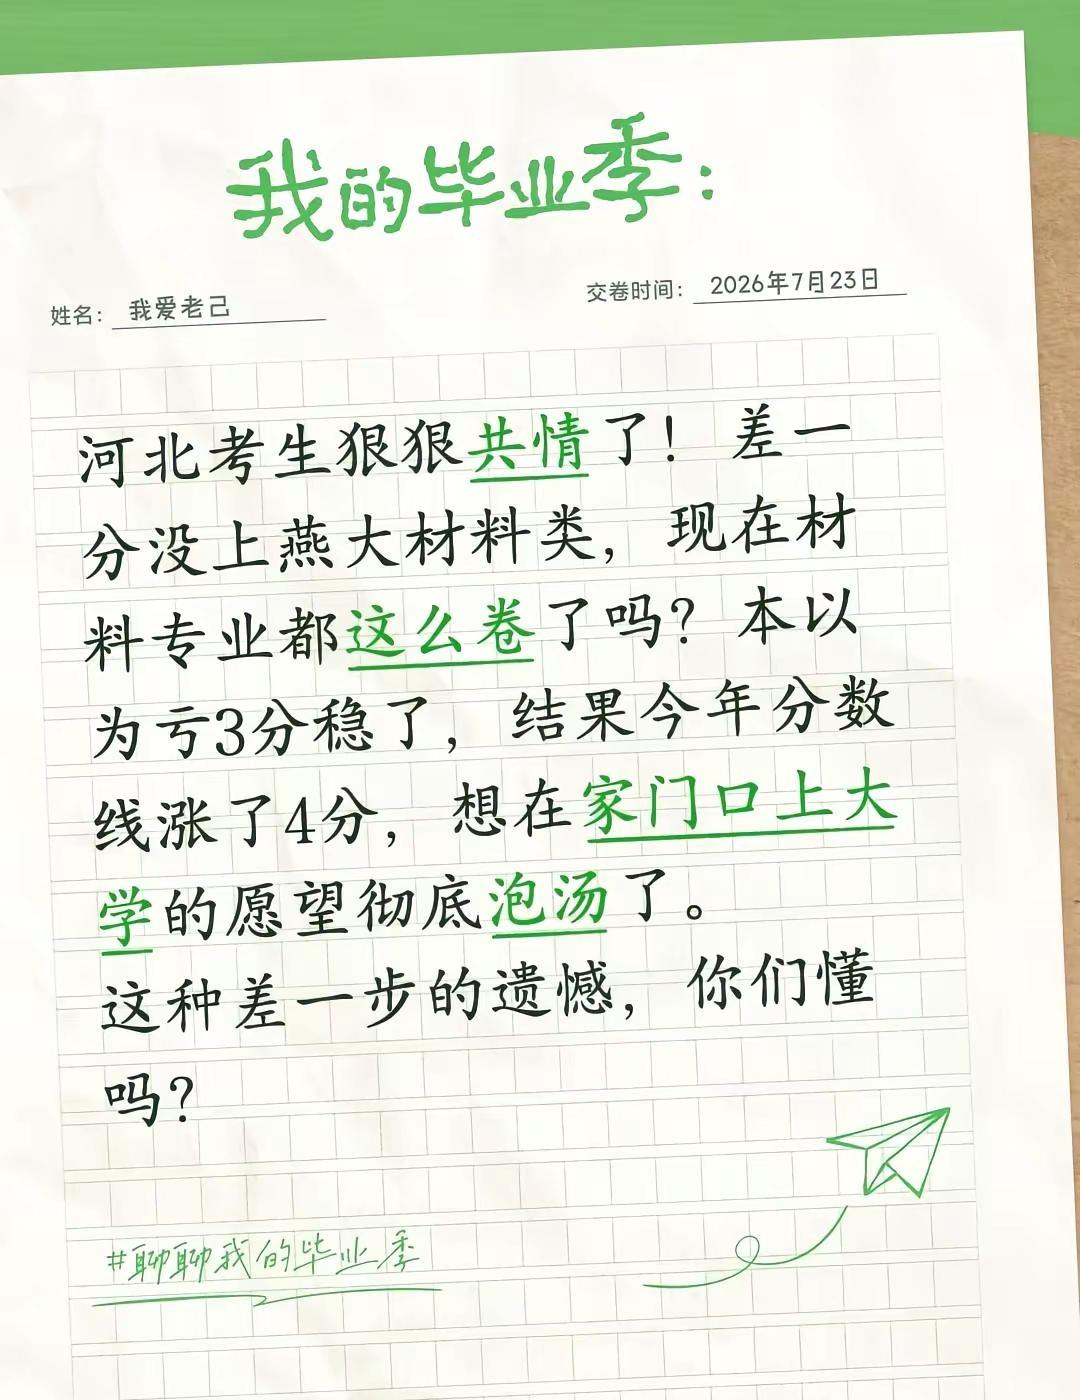 我的毕业季：
姓名：我爱老己
交卷时间：2026年7月23日
河北考生狠狠共情了！差一
分没上燕大材料类，现在材
料专业都这么卷了吗？本以
为亏3分稳了，结果今年分数
线涨了4分，想在家门口上大
学的愿望彻底泡汤了。
这种差一步的遗憾，你们懂
吗？
#聊聊我的毕业季